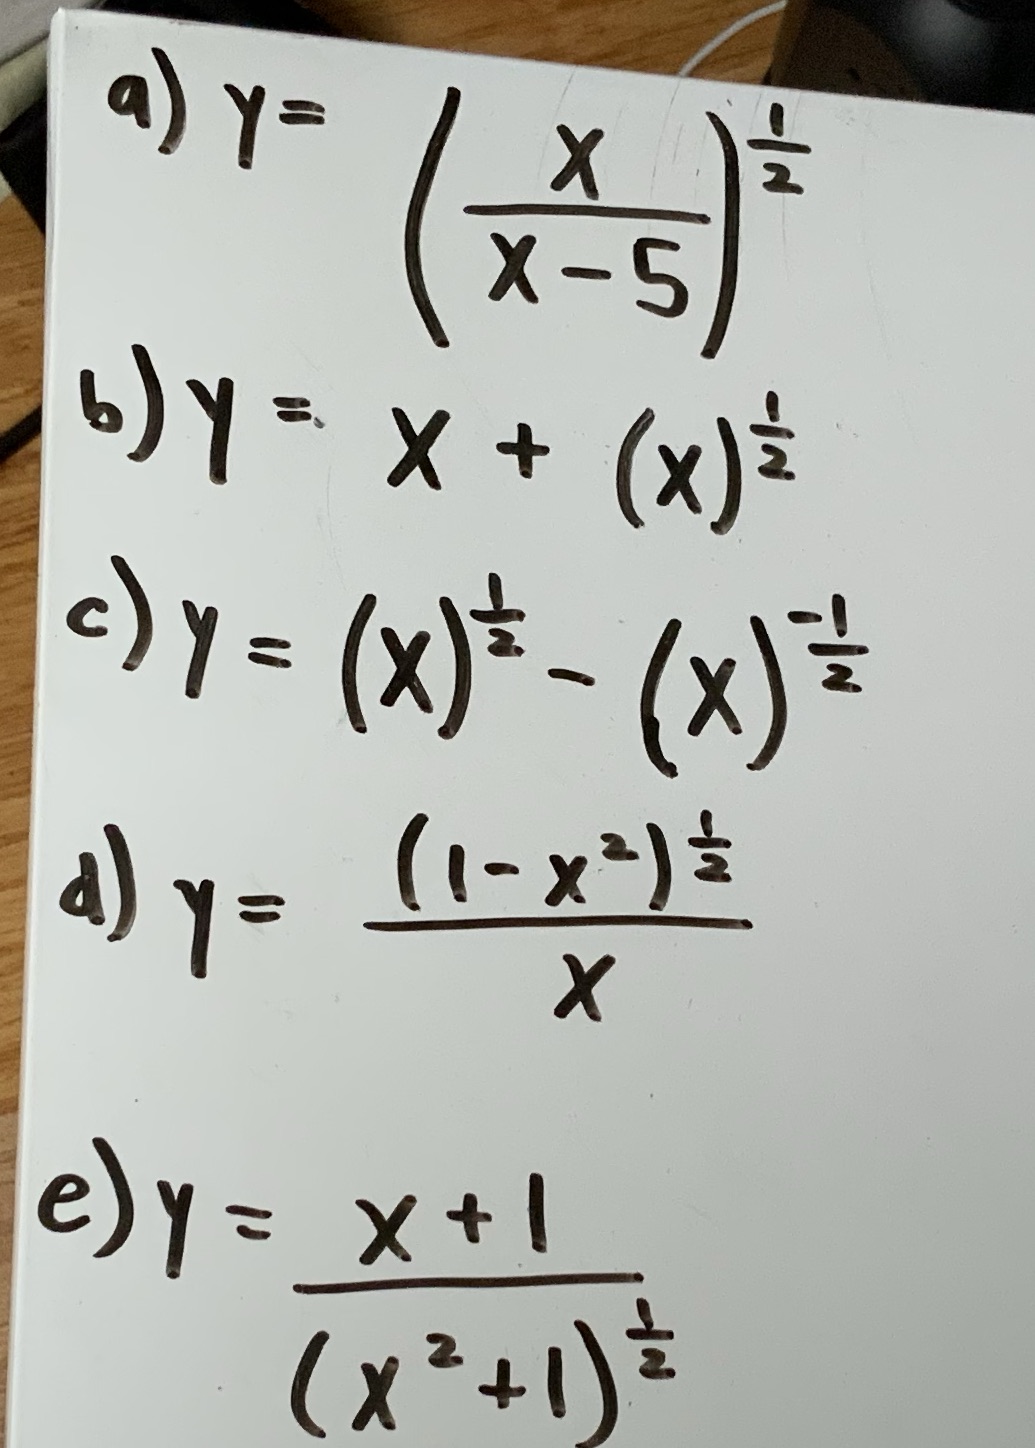 a) y = (x/(x-5))^(1/2)
b) y = x + (x)^(1/2)
c) y = (x)^(1/2) - (x)^(-1/2)
d) y = (1-x²)^(1/2)/x
e) y = (x+1)/(x²+1)^(1/2)